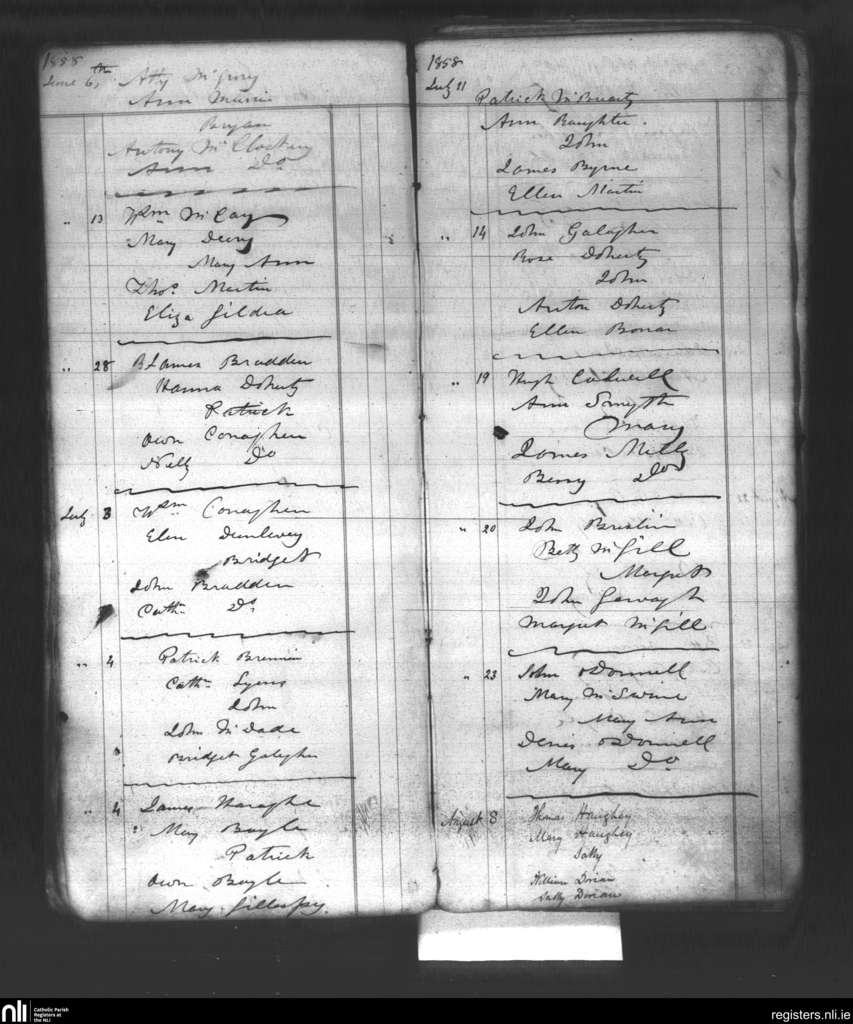 1858
June 6th Atty McGrory
Ann
Bryan
Antony McCloskey
Ann Do
" 13 Wm McCay
Mary Deery
Mary Ann
Thos. Martin
Eliza Gildea
" 28 James Bradden
Hanna Doherty
Patrick
Own Conaghen
Nelly Do
July 3 Wm Conaghen
Elen Dunlevey
Bridget
John Bradden
Cathn Do
" 4 Patrick Brennin
Cathn Lyons
John
John McDade
Bridget Galagher
" 4 James
Mary Boyle
Patrick
Own Boyle
Mary Gillaspy.
1858
July 11 Patrick McBrearty
Ann
John
James Byrne
Ellen Martin
" 14 John Galagher
Rose Doherty
John
Anton Doherty
Ellen Bonar
" 19 Hugh Cadwell
Ann Smyth
Mary
James
Do
" 20 John Breslin
Betty McGill
Margret
John
Margret McGill
" 23 John ODonnell
Mary McSwine
Mary Ann
Denis ODonnell
Mary Do
August 8 Thomas Haughey
Mary Haughey
Sally
William Dorian
Sally Dorian
nli
Catholic Parish
Registers at
the NLI
registers.nli.ie